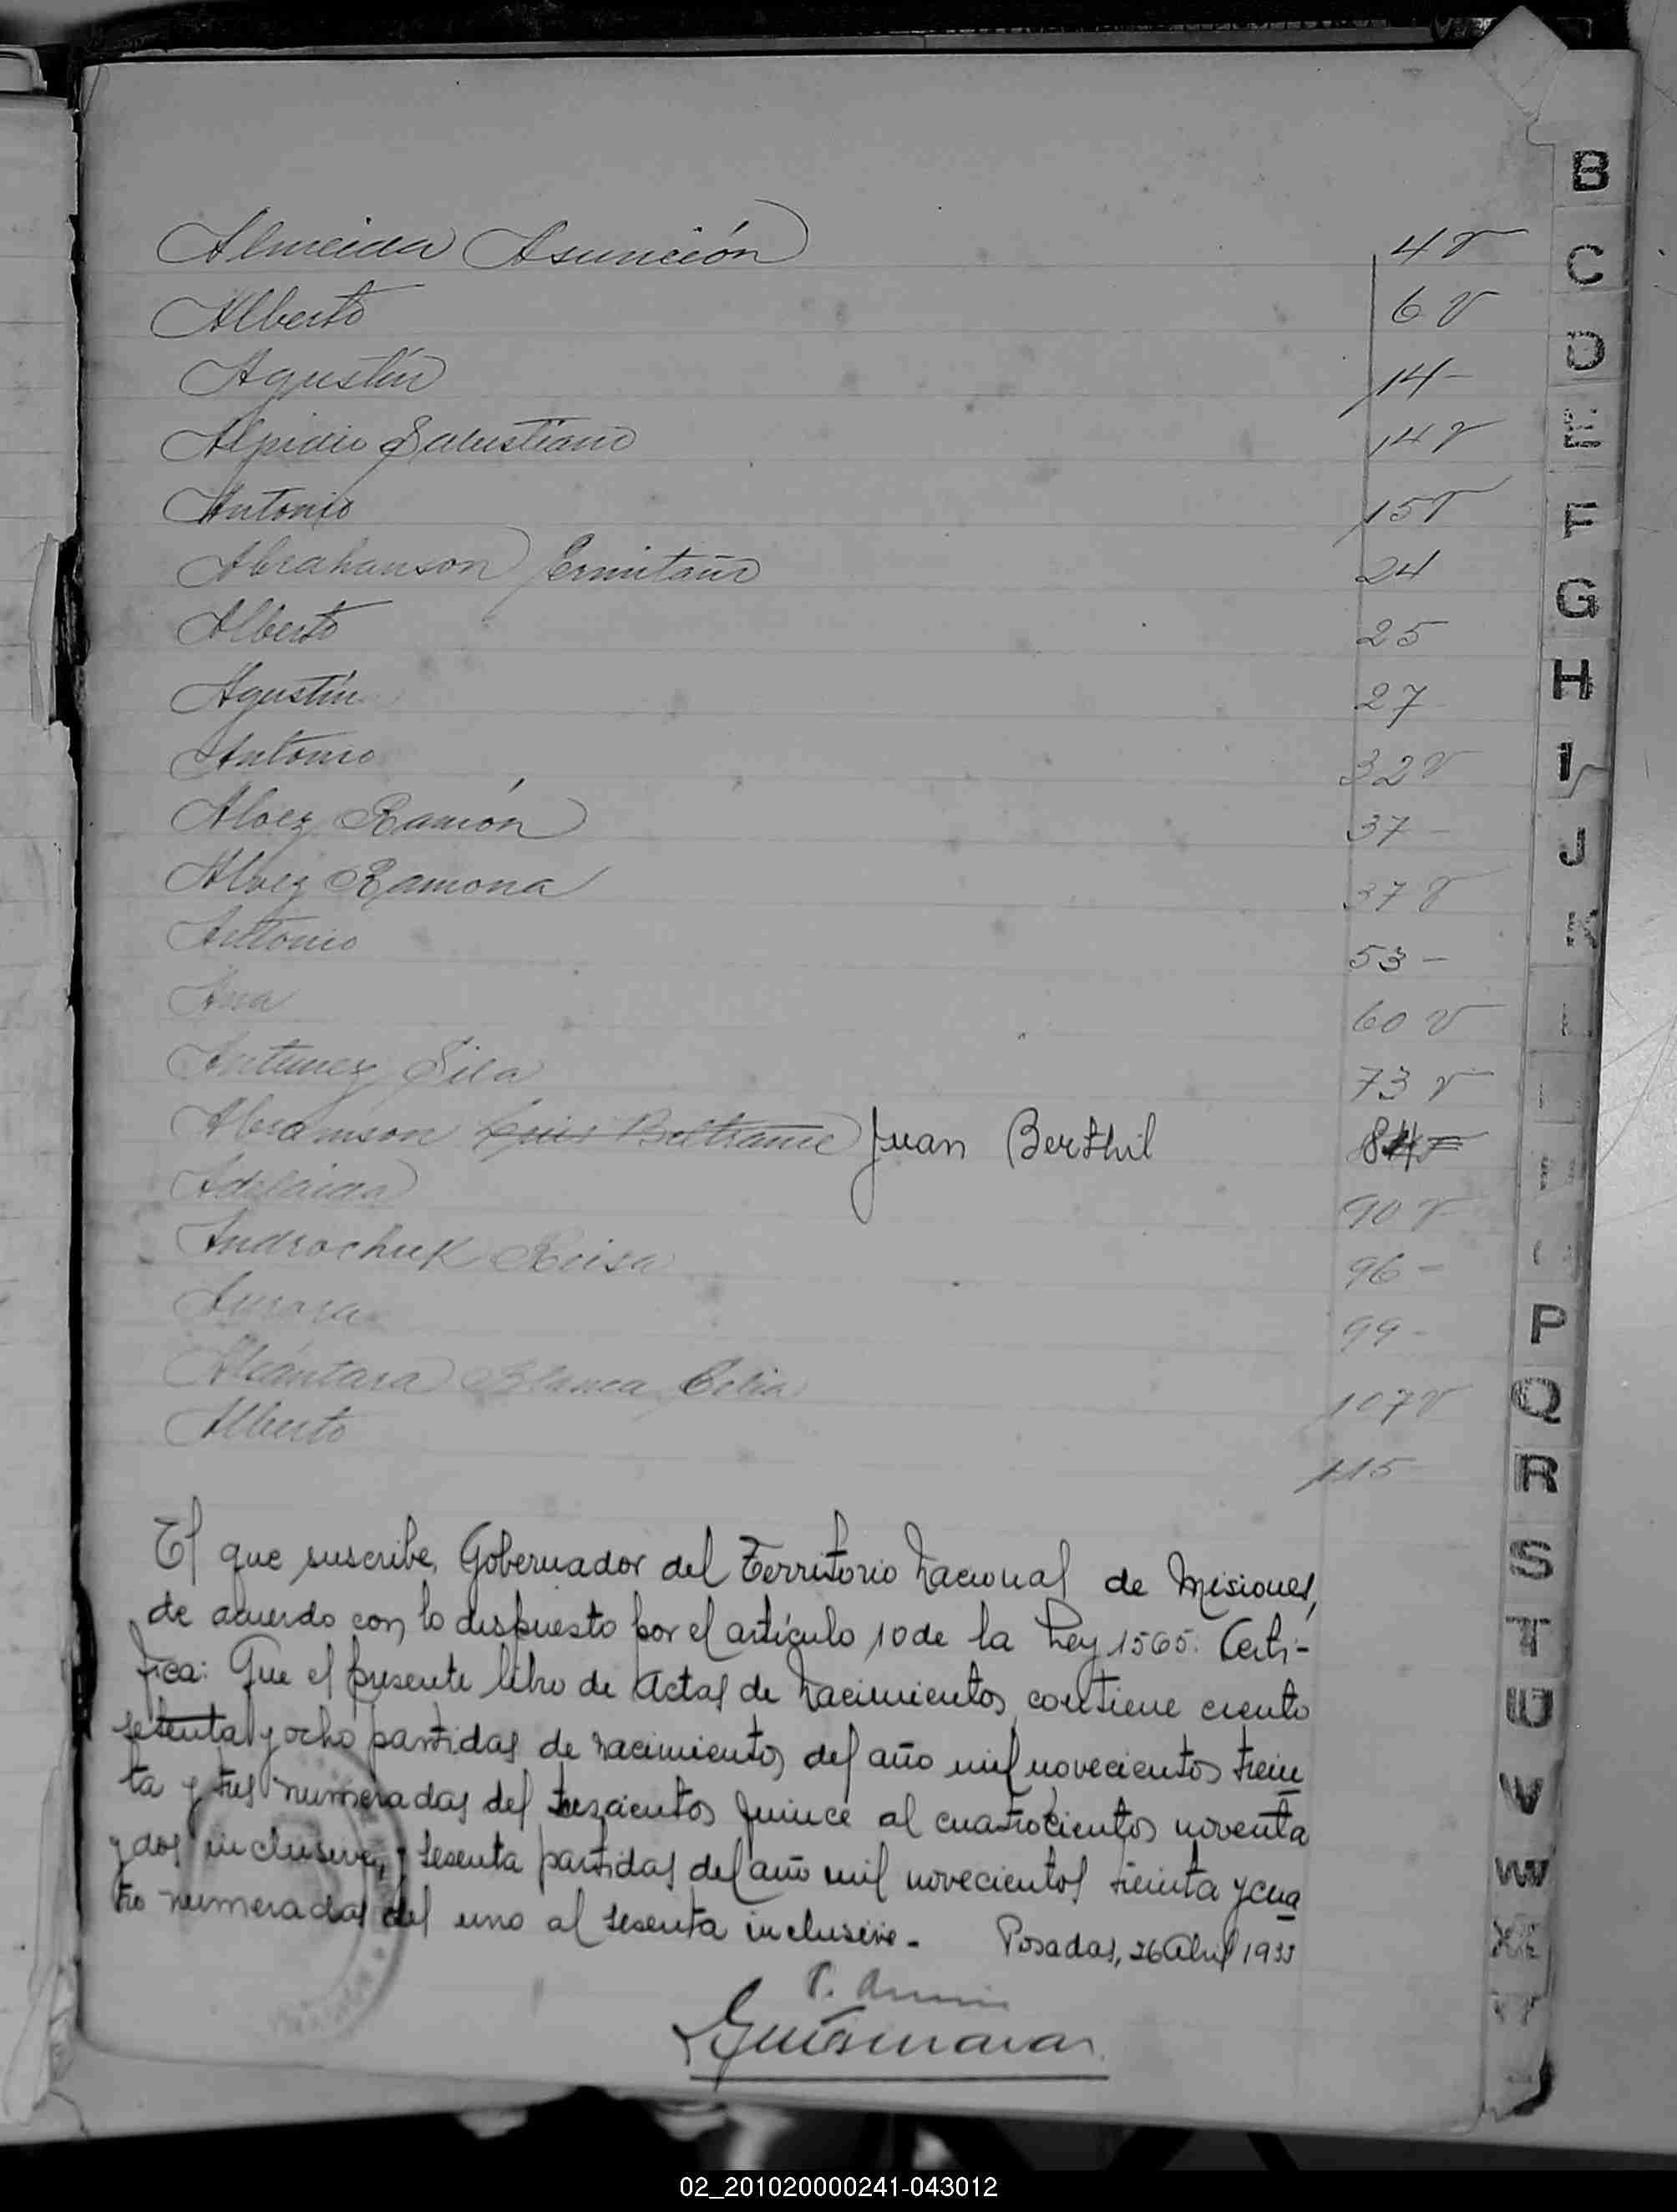 Almeida Asunción 4 v
Alberto 6 v
Agustín 14 -
Alpidio Salustiano 14 v
Antonio 15 v
Abrahanson Ermitaño 24
Alberto 25
Agustín 27
Antonio 32 v
Alvez Ramón 37 -
Alvez Ramona 37 v
Antonio 53 -
Ana 60 v
Antunez Sila 73 v
Abramson Luis Beltrame Juan Berthil 84
Adelaida 90 v
Androchuk Rosa 96 -
Aurora 99 -
Alcántara Blanca Celia 107 v
Alberto 115
El que suscribe, Gobernador del Territorio Nacional de Misiones,
de acuerdo con lo dispuesto por el artículo 10 de la Ley 1565: Certi-
fica: Que el presente libro de Actas de Nacimientos, contiene ciento
setenta y ocho partidas de nacimientos del año mil novecientos trein
ta y tres numeradas del trescientos quince al cuatrocientos noventa
y dos inclusive, y sesenta partidas del año mil novecientos treinta y cua
tro numeradas del uno al sesenta inclusive. Posadas, 26 Abril 1935
B
C
D
E
F
G
H
I
J
K
P
Q
R
S
T
U
V
W
X
Y
02_201020000241-043012